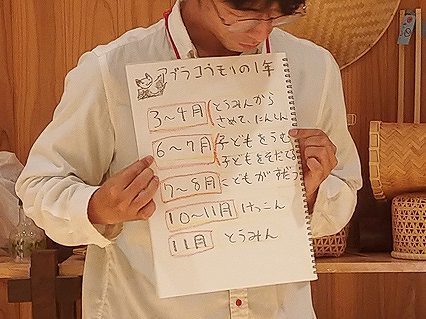 アブラコウモリの1年
3〜4月 とうみんから
さめて、にんしん
6〜7月 子どもをうむ
子どもをそだてる
7〜8月 こどもがすだつ
10〜11月 けっこん
11月 とうみん